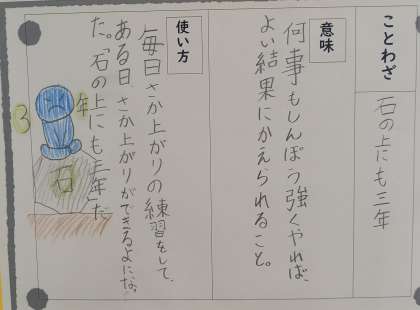 ことわざ
石の上にも三年
意味
何事もしんぼう強くやれば、
よい結果にかえられること。
使い方
毎日さか上がりの練習をして、
ある日、さか上がりができるようになっ
た。「石の上にも三年」だ。
3年
石